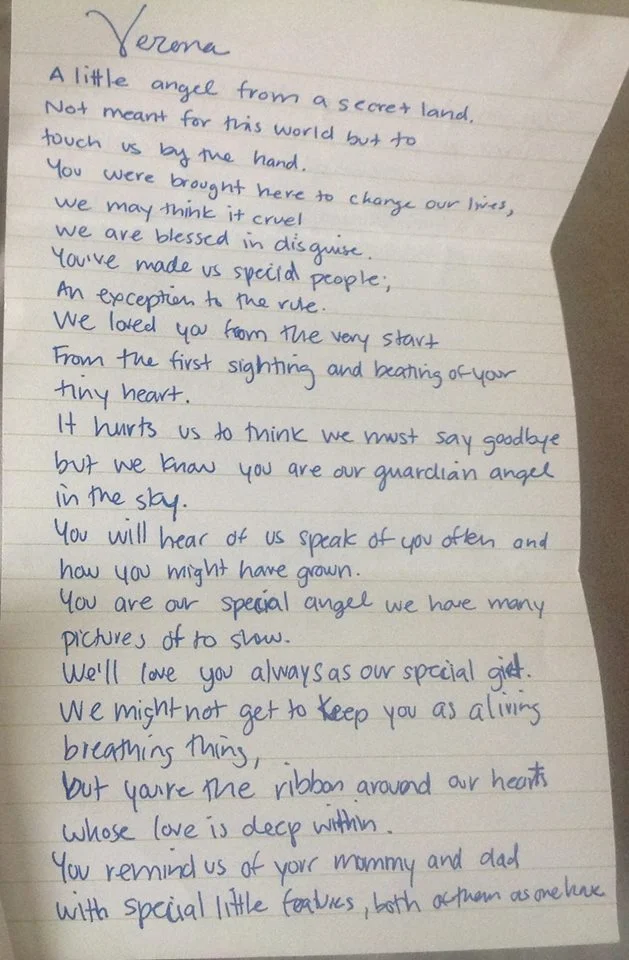 Verona
A little angel from a secret land.
Not meant for this world but to
touch us by the hand.
You were brought here to change our lives,
we may think it cruel
we are blessed in disguise.
You've made us special people;
An exception to the rule.
We loved you from the very start
From the first sighting and beating of your
tiny heart.
It hurts us to think we must say goodbye
but we know you are our guardian angel
in the sky.
You will hear of us speak of you often and
how you might have grown.
You are our special angel we have many
pictures of to show.
We'll love you always as our special gift.
We might not get to keep you as a living
breathing thing,
but you're the ribbon around our hearts
whose love is deep within.
You remind us of your mommy and dad
with special little features, both of them as one have